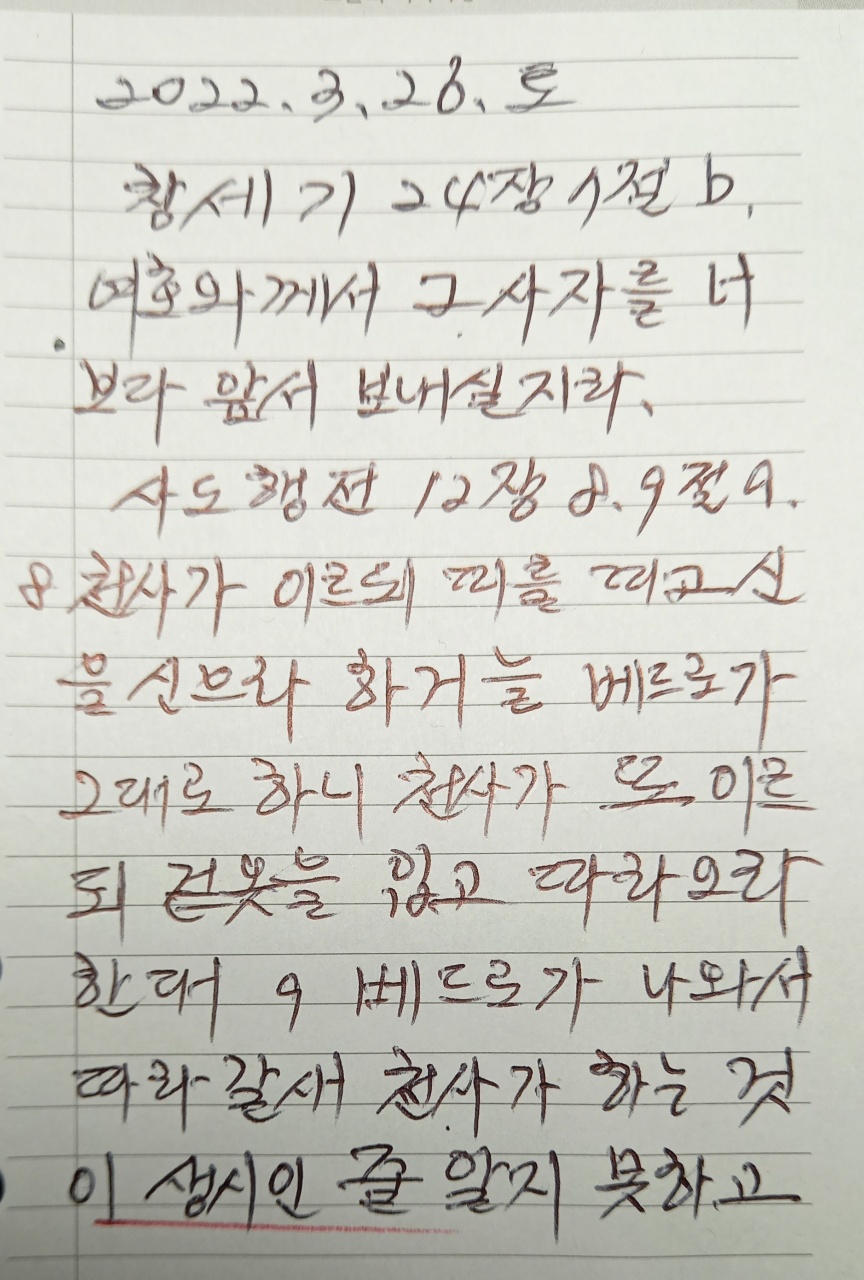 2022. 3. 26. 토
창세기 24장 7절 b.
여호와께서 그 사자를 너
보다 앞서 보내실지라.
사도행전 12장 8. 9절 a.
8 천사가 이르되 띠를 띠고 신
을 신으라 하거늘 베드로가
그대로 하니 천사가 또 이르
되 겉옷을 입고 따라오라
한대 9 베드로가 나와서
따라갈새 천사가 하는 것
이 생시인 줄 알지 못하고